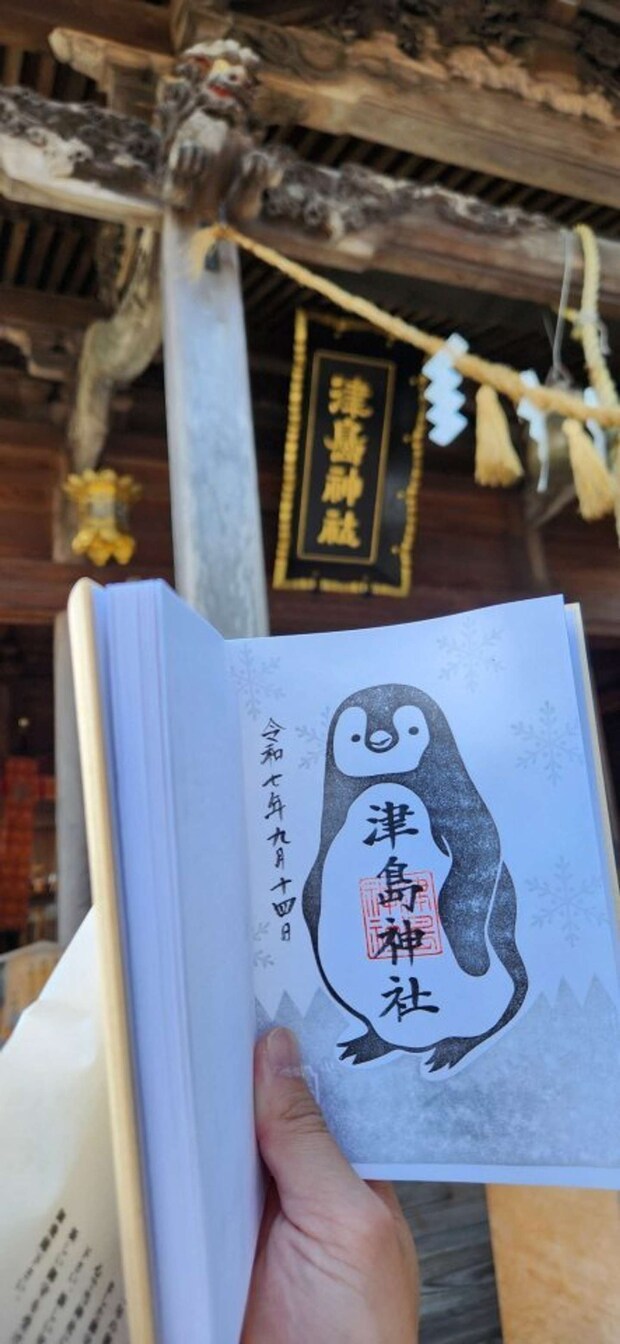 津島神社
令和七年九月十四日
津島神社